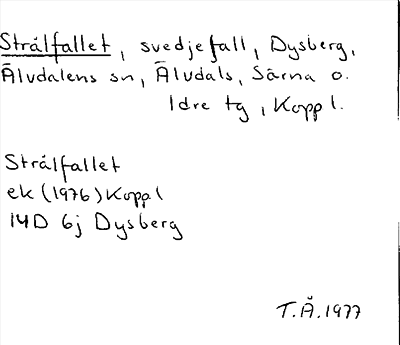 Strålfallet, svedjefall, Dysberg,
Älvdalens sn, Älvdals, Särna o.
Idre tg, Koppl.
Strålfallet
ek (1976) Koppl
14D 6j Dysberg
T.Å.1977